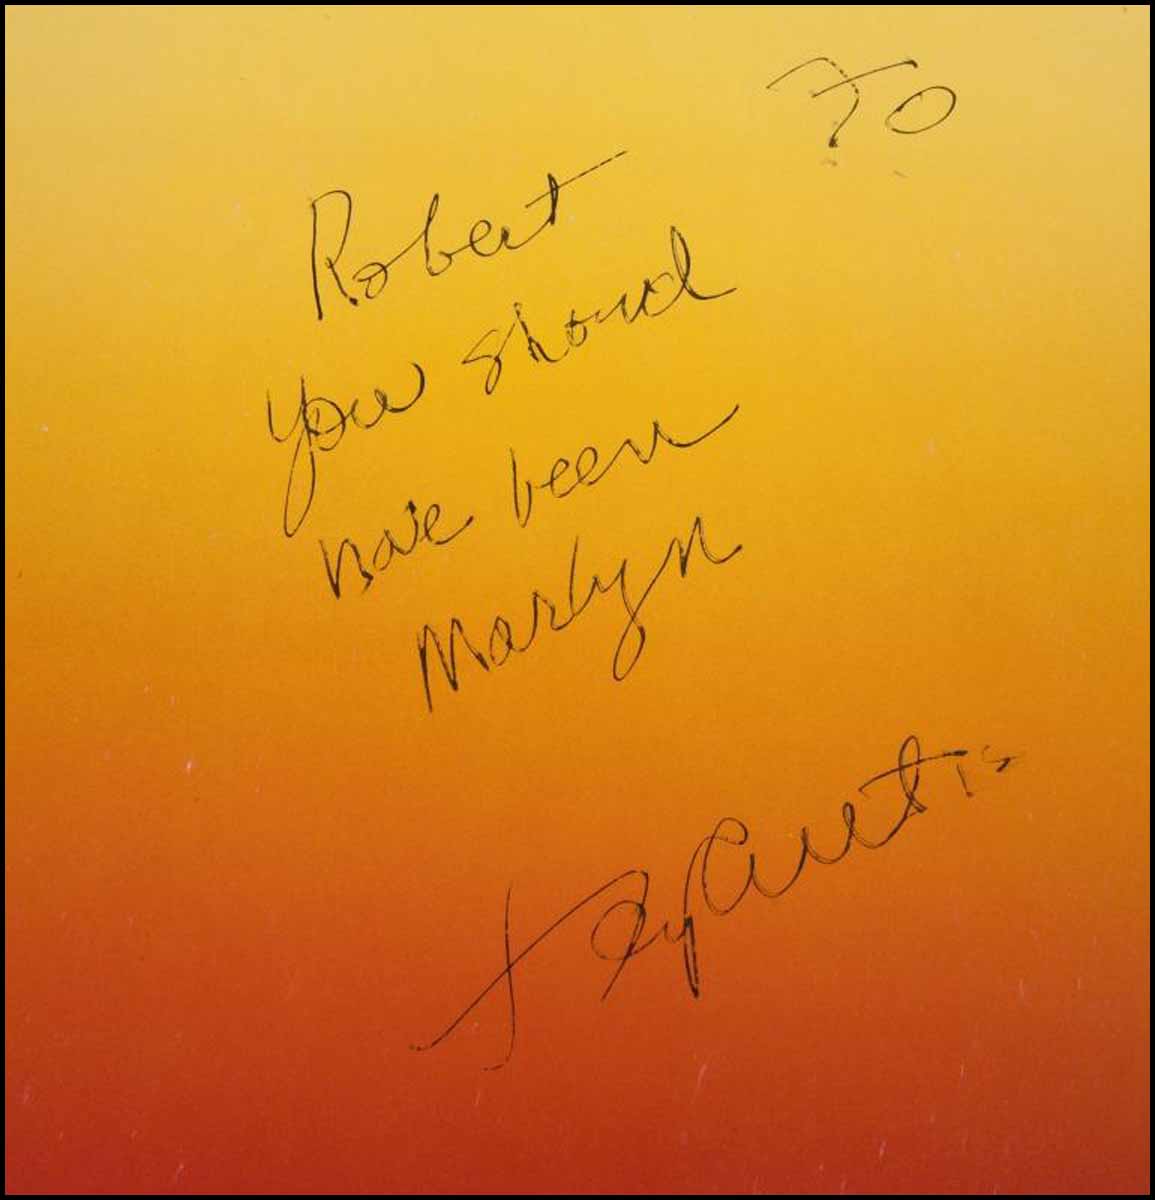 To
Robert
you should
have been
Marlyn
Tony Curtis